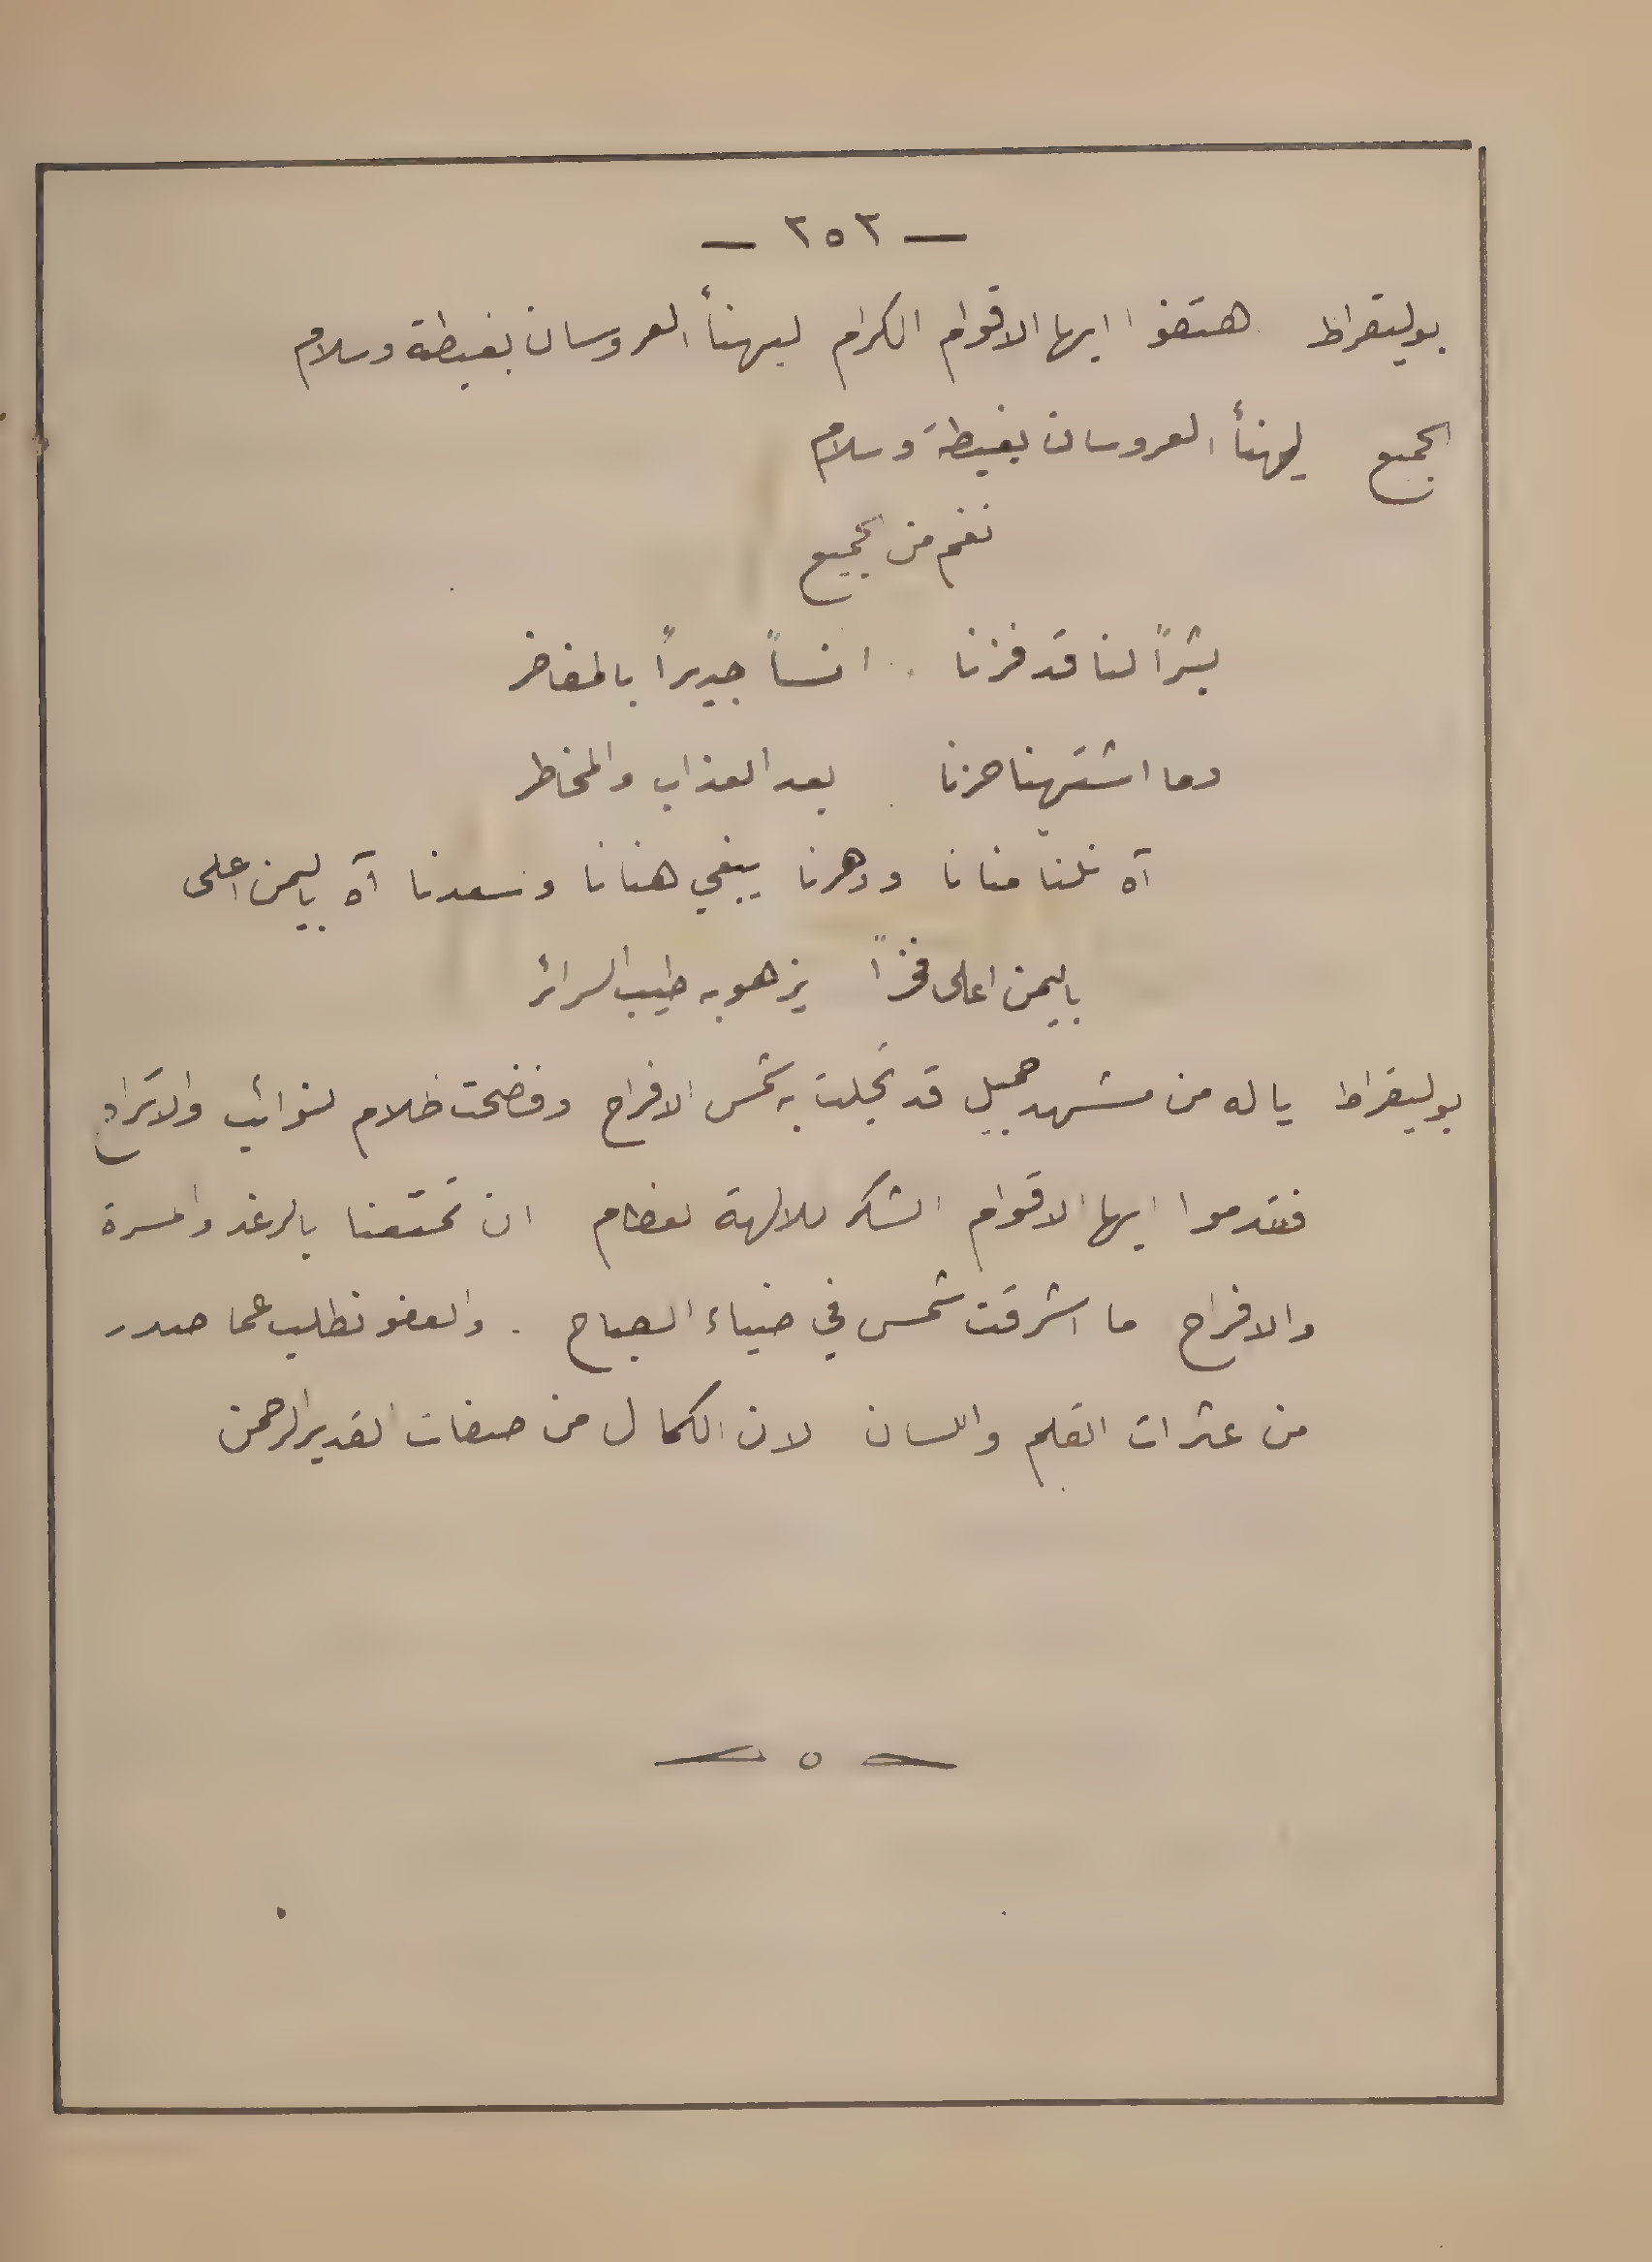 — ٢٥٢ —
بوليقراط هتفوا ايها الاقوام الكرام ليهنأ العروسان بغبطة وسلام
الجميع ليهنأ العروسان بغبطة وسلام
نغم من الجميع
بشراً لنا قد فزنا انساً جديراً بالمفاخر
وما اشتهينا حزنا بعد العذاب والمخاطر
آه نلنا منانا ودهرنا يبغي هنانا وسعدنا آه باليمن اعلى
باليمن اعلى فخراً يزهو به طيب السرائر
بوليقراط يا له من مشهد جميل قد تجلت به شمس الافراح وفضحت ظلام لنوائب والاتراح
فقدموا ايها الاقوام الشكر للالهة لعظام ان تمتعنا بالرغد والمسرة
والافراح ما اشرقت شمس في ضياء الصباح . والعفو نطلب عما صدر
من عثرات القلم واللسان لان الكمال من صفات القدير الرحمن